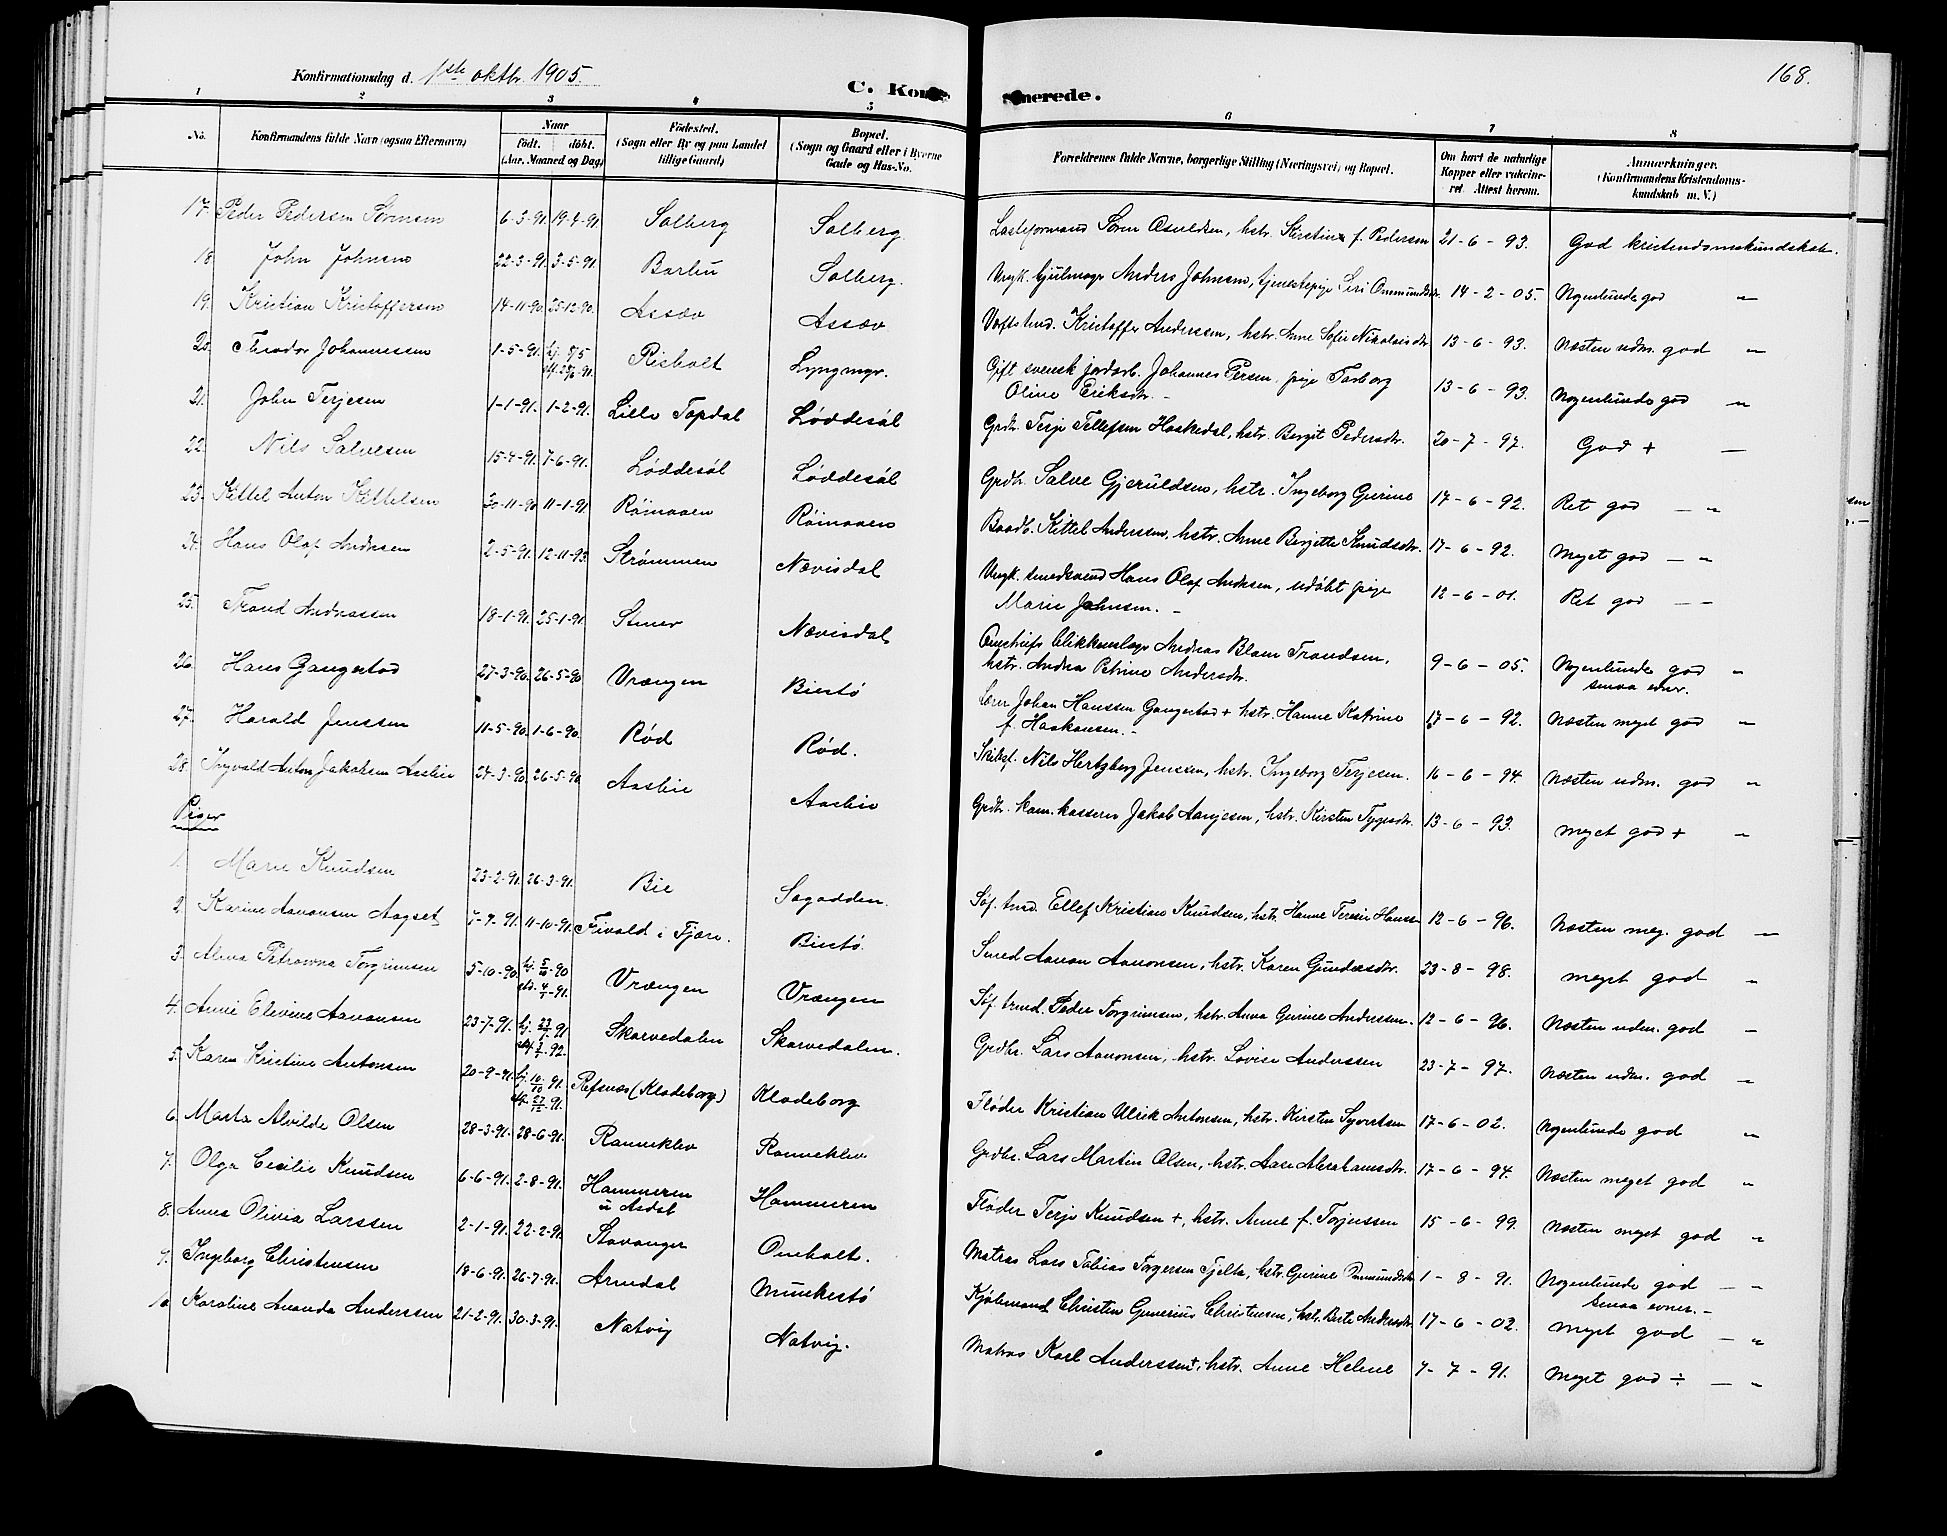 Konfirmationsdag d. 1ste oktbr. 1905.
C. Kon merede.
168.
1 2 3 4 5 6 7 8
No. Konfirmandens fulde Navn (ogsaa Efternavn) Naar födt. döbt. (Aar, Maaned og Dag) Födested. (Sogn eller By og paa Landet tillige Gaard) Bopæl. (Sogn og Gaard eller i Byerne Gade og Hus-No. Forældrenes fulde Navne, borgerlige Stilling (Næringsvei) og Bopæl. Om havt de naturlige Kopper eller vakcineret. Attest herom. Anmærkninger. (Konfirmandens Kristendomskundskab m. V.)
17. Peder Pedersen Sørensen 6-3-91. 19-4-91. Solberg Solberg. Lasteformand Søren Osuldsen, hstr. Kirstine f. Pedersen 21-6-93. God kristendomskundskab.
18 John Johnsen 22-3-91. 3-5-91. Barbu Solberg. Ungk. hjulmager Anders Johnsen, tjenestepige Siri Ommundsdtr. 14-2-05. Nogenlunde god "
19. Kristian Kristoffersen 14-11-90. 25-12-90. Assæv Assæv Værftstmd. Kristoffer Anderssen, hstr. Anne Sofie Nikolaisdtr. 13-6-93. Næsten udm. god "
20. Theodor Johannessen 1-5-91. Risholt Lyngmyr. Gift svensk jordarb. Johannes Persen, pige Tarborg
Oline Eriksdtr. - 13-6-93. Nogenlunde god "
21. John Terjesen 1-1-91. 1-2-91. Lille Topdal Løddesøl Grdbr. Terje Tellefsen Haskedal, hstr. Bergit Pedersdtr. 20-7-97. God + —
22. Nils Salvesen 15-4-91. 7-6-91. Løddesøl Løddesøl Grdbr. Salve Gjeruldsen, hstr. Ingeborg Gurine 17-6-92. Ret god — "
23. Kittel Anton Kittelsen 30-11-90 11-1-91. Røinaaen Røinaaen Baadb. Kittel Anderssen, hstr. Anne Birgitte Knudsdtr. 17-6-92. Meget god — "
24. Hans Olaf Andersen 2-5-91. 12-11-93. Strømmen Nævisdal Ungk. smedsvend Hans Olaf Andersen, udøbt pige
Marie Johnsen. - 12-6-01. Ret god — -
25. Trond Andreassen 18-1-91. 25-1-91. Stener Nævisdal Omstreifs blikkenslager Andreas Blom Trondsen,
hstr. Andrea Petrine Andersdtr. 9-6-05. Nogenlunde god "
smaa evner.
26. Hans Gangestad 27-3-90. 26-5-90 Vrængen Biestø Lærer Johan Hanssen Gangestad + hstr. Hanne Katrine
f. Haakonsen. - 17-6-92. Næsten meget god "
27. Harald Jenssen 11-5-90. 1-6-90. Rød Rød. Skibsf. Nils Hertzberg Jenssen, hstr. Ingeborg Terjesen. 16-6-94. Næsten udm. god "
28. Ingvald Anton Jakobsen Aasbie 24-3-90. 26-5-90 Aasbie Aasbie Grdbr. kom. kasserer Jakob Aanjesen, hstr. Kirsten Tygesdtr. 13-6-93. Meget god + "
Piger
1. Marie Knudsen 23-2-91. 26-3-91. Bie Sagodden. Søf. tmd. Ellef Kristian Knudsen, hstr. Hanne Teresie Hansen 12-6-96. Næsten meg. god —
2. Karine Aanonsen Aagset 7-9-91. 11-10-91. Fivold i Fjære. Biestø. Smed Aanon Aanonsen, hstr. Karen Gundersdtr. 23-8-98. Meget god "
3. Alma Petrovna Torgrimsen 5-10-90. hj. 5/10-90
std. 4/1-91. Vrængen Vrængen Søf. tmd. Peder Torgrimsen, hstr. Anna Gurine Anderssen. 12-6-96. Næsten udm. god -
4. Anne Elevine Aanonsen 23-7-91. Skarvedalen Skarvedalen. Grdbr. Lars Aanonsen, hstr. Lovise Anderssen 23-7-97. Næsten udm. god "
5. Karen Kristine Antonsen 20-9-91. hj. 10/10 91.
stf. 27/12-91. Refsnæs (Klodeborg) Klodeborg Fløder Kristian Ulrik Antonsen, hstr. Kirsten Syvertsen 17-6-02. Nogenlunde god "
6. Marta Alvilde Olsen 28-3-91. 28-6-91. Ranneklev Ranneklev Grdbr. Lars Martin Olsen, hstr. Aase Abrahamsdtr. 17-6-94. Næsten meget god "
7. Olga Cecilie Knudsen 6-6-91. 2-8-91. Hammeren
u Asdal Hammeren Fløder Terje Knudsen +, hstr. Anne f. Torjussen 15-6-99. Næsten meget god "
8. Anna Olivia Larssen 2-1-91. 22-2-91. Stavanger Omholt. Matros Lars Tobias Torgersen Tjelta, hstr. Gurine Ommundsdtr 1-8-91. Nogenlunde god — -
smaa evner. -
9. Ingeborg Christensen 18-6-91. 26-7-91. Arendal Munkestø Kjøbmand Christen Gunerius Christensen, hstr. Berte Andersdtr. 17-6-02. Meget god — "
10 Karoline Amanda Anderssen 21-2-91. 30-3-91. Natvig Natvig. Matros Karl Anderssen +, hstr. Anne Helene 7-7-91. Meget god ÷ — "